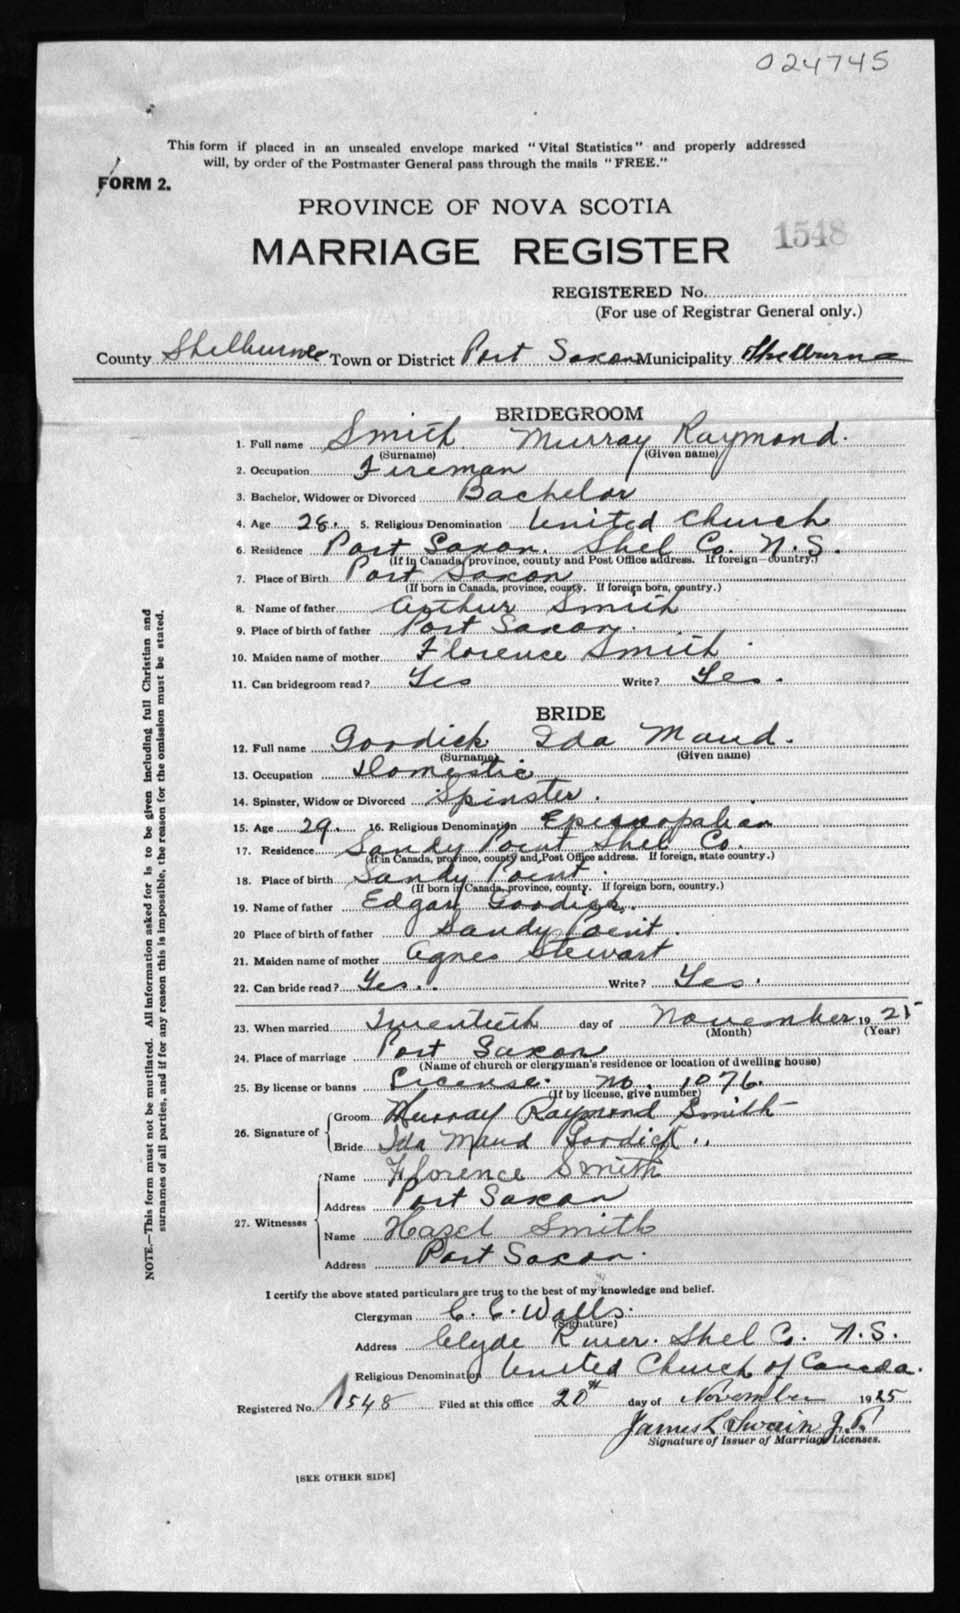 024745
This form if placed in an unsealed envelope marked "Vital Statistics" and properly addressed
will, by order of the Postmaster General pass through the mails "FREE."
FORM 2.
PROVINCE OF NOVA SCOTIA
MARRIAGE REGISTER 1548
REGISTERED No.
(For use of Registrar General only.)
County Shelburne Town or District Port Saxon Municipality Shelburne
BRIDEGROOM
1. Full name Smith Murray Raymond.
(Surname) (Given name)
2. Occupation Fireman
3. Bachelor, Widower or Divorced Bachelor
4. Age 28. 5. Religious Denomination United Church
6. Residence Port Saxon. Shel Co. N.S.
(If in Canada, province, county and Post Office address. If foreign—country.)
7. Place of Birth Port Saxon
(If born in Canada, province, county. If foreign born, country.)
8. Name of father Arthur Smith
9. Place of birth of father Port Saxon.
10. Maiden name of mother Florence Smith
11. Can bridegroom read? Yes Write? Yes.
BRIDE
12. Full name Goodick Ida Maud.
(Surname) (Given name)
13. Occupation Domestic
14. Spinster, Widow or Divorced Spinster.
15. Age 29. 16. Religious Denomination Episcopalian
17. Residence Sandy Point Shel Co.
(If in Canada, province, county and Post Office address. If foreign, state country.)
18. Place of birth Sandy Point.
(If born in Canada, province, county. If foreign born, country.)
19. Name of father Edgar Goodick.
20 Place of birth of father Sandy Point.
21. Maiden name of mother Agnes Stewart
22. Can bride read? Yes.. Write? Yes.
23. When married Twentieth day of November 1925
(Month) (Year)
24. Place of marriage Port Saxon
(Name of church or clergyman's residence or location of dwelling house)
25. By license or banns License. no. 1076.
(If by license, give number)
26. Signature of Groom Murray Raymond Smith
Bride Ida Maud Goodick..
27. Witnesses Name Florence Smith
Address Port Saxon
Name Hazel Smith
Address Port Saxon.
I certify the above stated particulars are true to the best of my knowledge and belief.
Clergyman C. C. Walls.
(Signature)
Address Clyde River. Shel Co. N.S.
Religious Denomination United Church of Canada.
Registered No. 1548 Filed at this office 20th day of November 1925
James L Swain J.P.
Signature of Issuer of Marriage Licenses.
[SEE OTHER SIDE]
NOTE.—This form must not be mutilated. All information asked for is to be given including full Christian and
surnames of all parties, and if for any reason this is impossible, the reason for the omission must be stated.